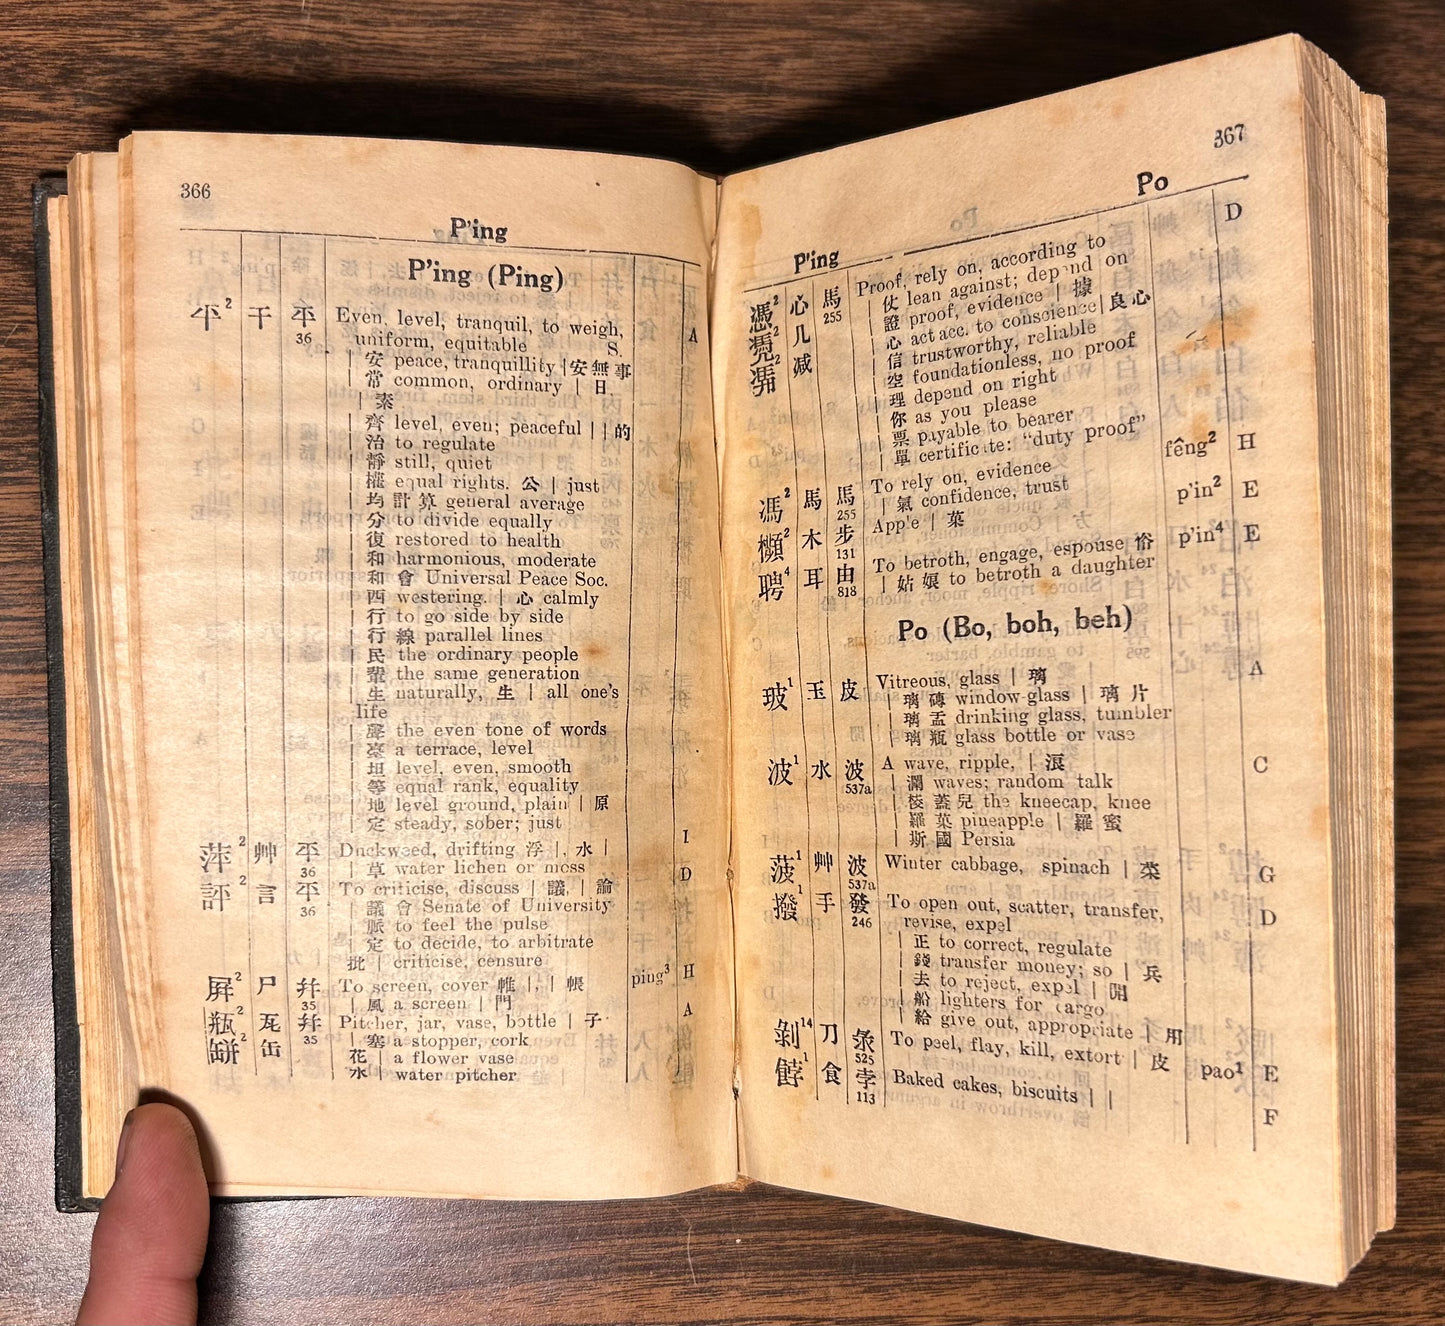 366
P'ing
P'ing (Ping)
平² 干 平 36 Even, level, tranquil, to weigh, A
uniform, equitable S.
| 安 peace, tranquillity | 安無事
| 常 common, ordinary | 日.
| 素
| 齊 level, even; peaceful | | 的
| 治 to regulate
| 靜 still, quiet
| 權 equal rights. 公 | just
| 均計算 general average
| 分 to divide equally
| 復 restored to health
| 和 harmonious, moderate
| 和會 Universal Peace Soc.
| 西 westering. | 心 calmly
| 行 to go side by side
| 行線 parallel lines
| 民 the ordinary people
| 輩 the same generation
| 生 naturally, 生 | all one's
life
| 聲 the even tone of words
| 臺 a terrace, level
| 坦 level, even, smooth
| 等 equal rank, equality
| 地 level ground, plain | 原
| 定 steady, sober; just
萍² 艸 平 36 Duckweed, drifting 浮 |, 水 | I
| 草 water lichen or moss
評² 言 平 36 To criticise, discuss | 議, | 論 D
| 議會 Senate of University
| 脈 to feel the pulse
| 定 to decide, to arbitrate
批 | criticise, censure
屏² 尸 并 35 To screen, cover 帷 |, | 帳 ping³ H
| 風 a screen | 門
瓶² 瓦 并 35 Pitcher, jar, vase, bottle | 子 A
缾² 缶 | 塞 a stopper, cork
花 | a flower vase
水 | water pitcher
367
P'ing Po
憑² 心 馬 255 Proof, rely on, according to D
凴² 几 | 仗 lean against; depend on
凭² 减 | 證 proof, evidence | 據
| 心 act acc. to conscience | 良心
| 信 trustworthy, reliable
| 空 foundationless, no proof
| 理 depend on right
| 你 as you please
| 票 payable to bearer
| 單 certificate: "duty proof"
馮² 馬 馬 255 To rely on, evidence fêng² H
| 氣 confidence, trust
櫇² 木 步 131 Apple | 菓 p'in² E
聘⁴ 耳 由 818 To betroth, engage, espouse p'in⁴ E
| 姑娘 to betroth a daughter
Po (Bo, boh, beh)
玻¹ 玉 皮 Vitreous, glass | 璃 A
| 璃磚 window-glass | 璃片
| 璃盂 drinking glass, tumbler
| 璃瓶 glass bottle or vase
波¹ 水 波 537a A wave, ripple, | 浪 C
| 瀾 waves; random talk
| 稜蓋兒 the kneecap, knee
| 羅菓 pineapple | 羅蜜
| 斯國 Persia
菠¹ 艸 波 537a Winter cabbage, spinach | 菜 G
撥¹ 手 發 246 To open out, scatter, transfer, D
revise, expel
| 正 to correct, regulate
| 錢 transfer money; so | 兵
| 去 to reject, expel | 開
| 船 lighters for cargo
| 給 give out, appropriate | 用
剝¹⁴ 刀 彔 525 To peel, flay, kill, extort | 皮 pao¹ E
餑¹ 食 孛 113 Baked cakes, biscuits | | F